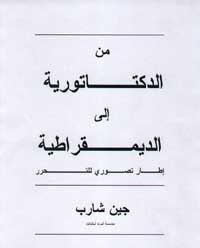 من
الدكتاتورية
إلى
الديمقراطية
إطار تصوري للتحرر
جين شارب